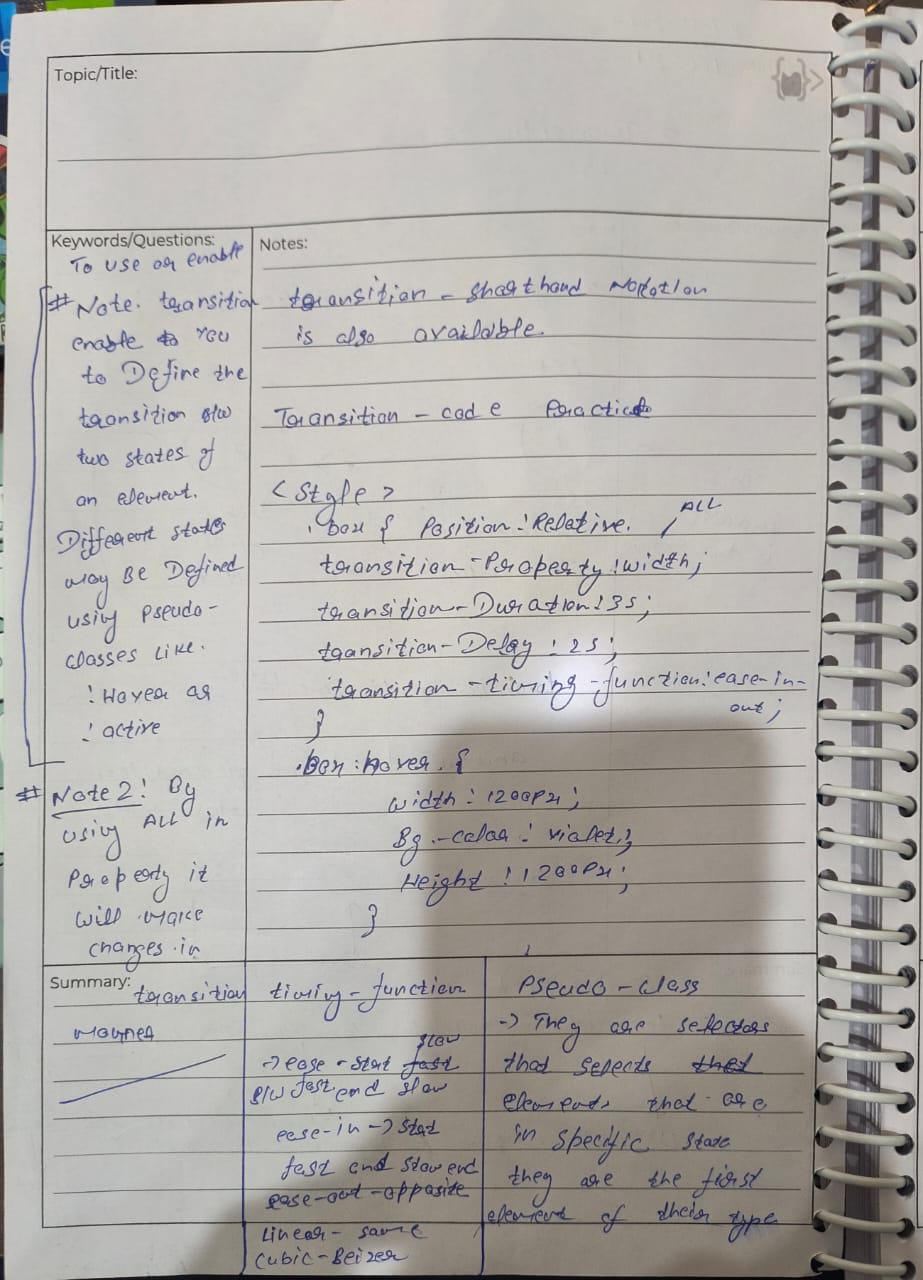 Topic/Title:
Keywords/Questions:
To use or enable
# Note. transition
enable to You
to Define the
transition b/w
two states of
an element.
Different states
may Be Defined
using pseudo-
classes Like.
: Hover or
: active
# Note 2: By
using ALL in
Property it
will make
changes in
Notes:
transition - shorthand Notation
is also available.
Transition - code Practice
<Style>
.box { Position: Relative.
ALL
transition-Property: width;
transition-Duration: 3s;
transition-Delay: 2s;
transition-timing-function: ease-in-
out;
}
.Box:hover. {
width: 1200Px;
Bg.-color: violet;
Height: 1200Px;
}
Summary:
transition
manner
timing-function
slow
-> ease - start fast
b/w fast end slow
ease-in -> start
fast and slow end
ease-out - opposite
Linear - same
Cubic-Beizer
Pseudo-class
-> They are selectors
that selects that
elements that are
in specific state
they are the first
element of their type